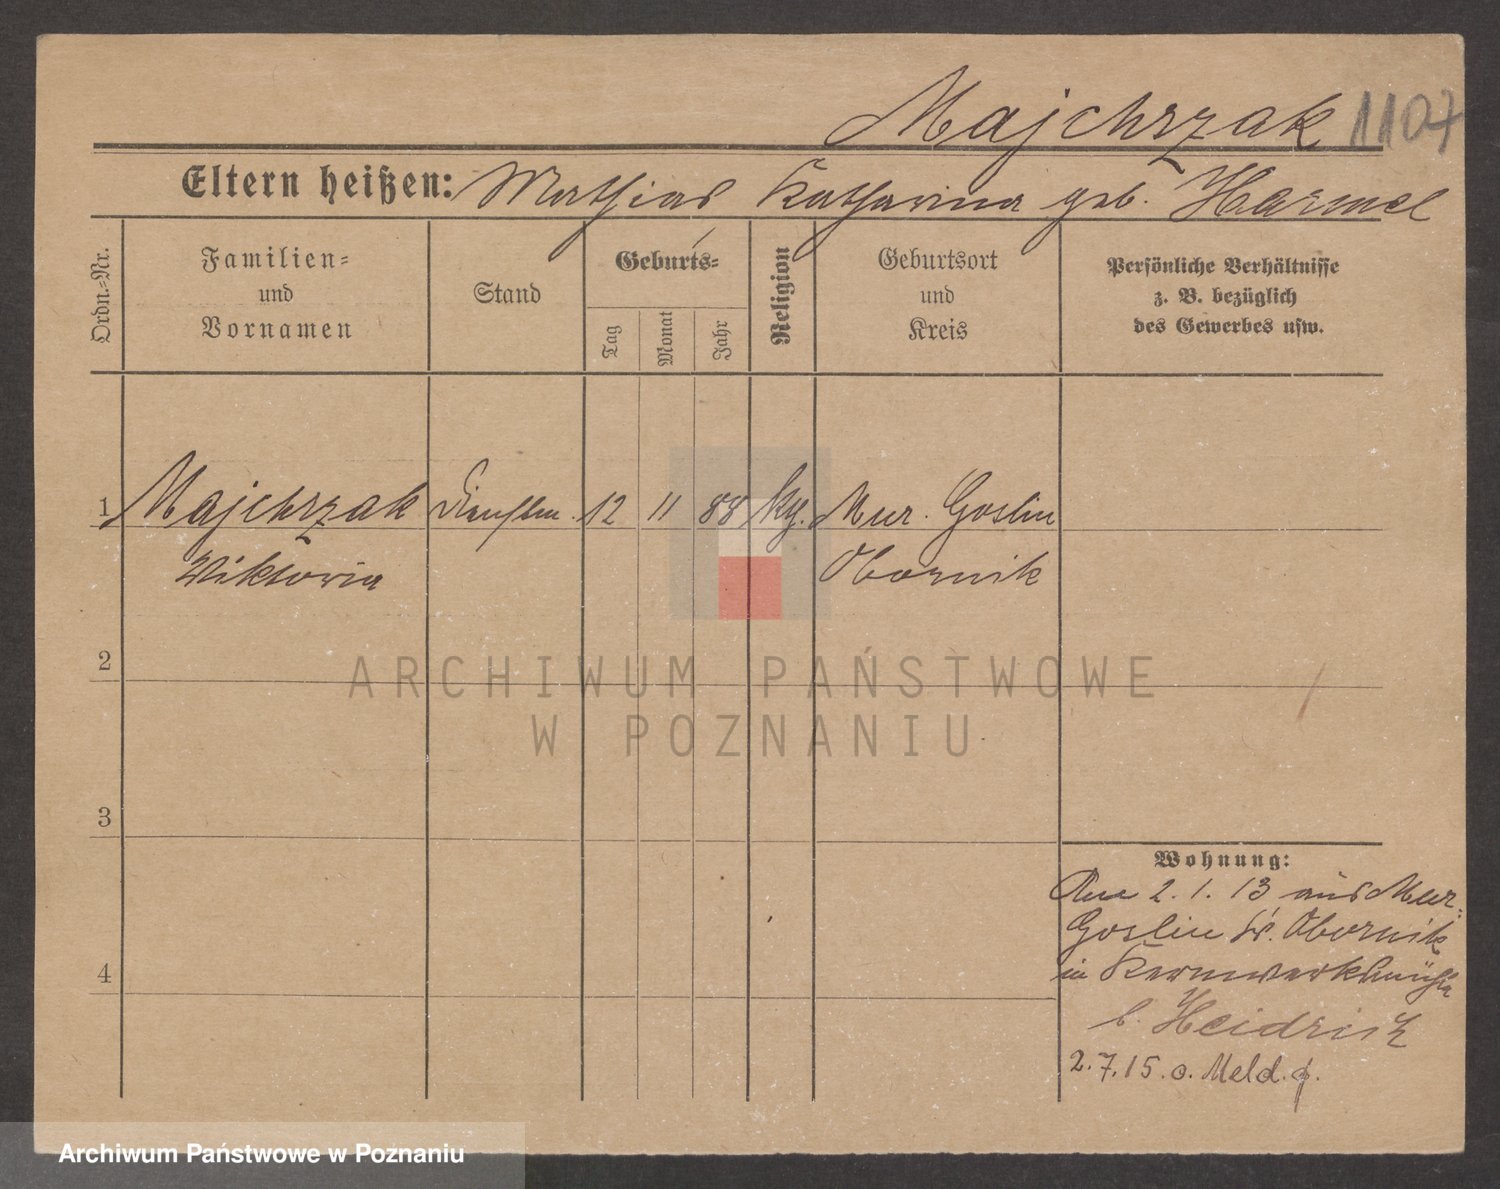 Majchrzak 1107
Eltern heißen: Mathias Katharina geb. Harmel
Ordn.-Nr.
Familien-
und
Vornamen
Stand
Geburts-
Tag
Monat
Jahr
Religion
Geburtsort
und
Kreis
Persönliche Verhältnisse
z. B. bezüglich
des Gewerbes usw.
1 Majchrzak Dienstm. 12 11 88 kg. Mur. Goslin
Viktoria Obornik
2
3
4
Wohnung:
2. 1. 13 aus Mur.
Goslin Kr. Obornik
in Kernwerksmühle
b. Heidrich
2.7.15. o. Meld.
ARCHIWUM PAŃSTWOWE
W POZNANIU
Archiwum Państwowe w Poznaniu